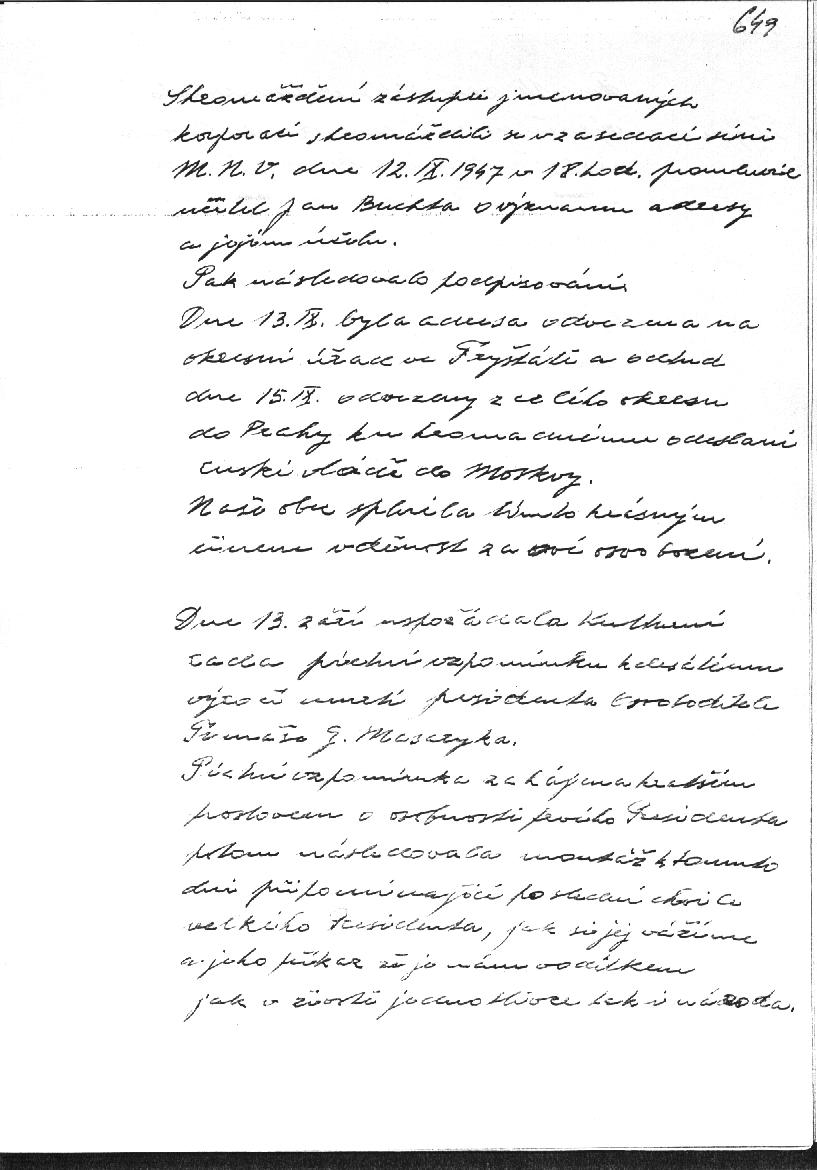 649
Shromáždění zástupci jmenovaných
korporací shromáždili se v zasedací síni
M. N. V. dne 12. IX. 1947 v 18. hod. promluvil
učitel Jan Buchta o významu adresy
a jejím účelu.
Pak následovalo podpisování.
Dne 13. IX. byla adresa odvezena na
okresní úřad ve Fryštátě a odtud
dne 15. IX. odvezeny z celého okresu
do Prahy ku hromadnému odeslání
ruské vládě do Moskvy.
Naše obec splnila tímto krásným
činem vděčnost za své osvobození.
Dne 13. září uspořádala Kulturní
rada pietní vzpomínku k desátému
výročí úmrtí presidenta Osvoboditele
Tomáše G. Masaryka.
Pietní vzpomínka zahájena kratším
proslovem o osobnosti prvého Presidenta
potom následovala montáž k tomuto
dni připomínající poslední chvíle
velkého Presidenta, jak si jej vážíme
a jeho příkaz že je nám vodítkem
jak v životě jednotlivce tak i národa.